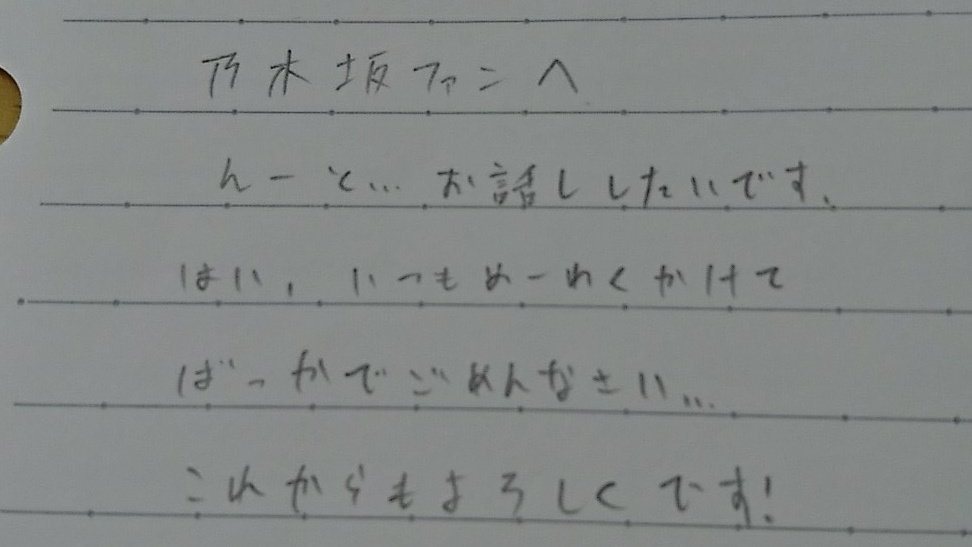 乃木坂ファンへ
んーと... お話ししたいです、
はい、いつもめーわくかけて
ばっかでごめんなさい...
これからもよろしくです!